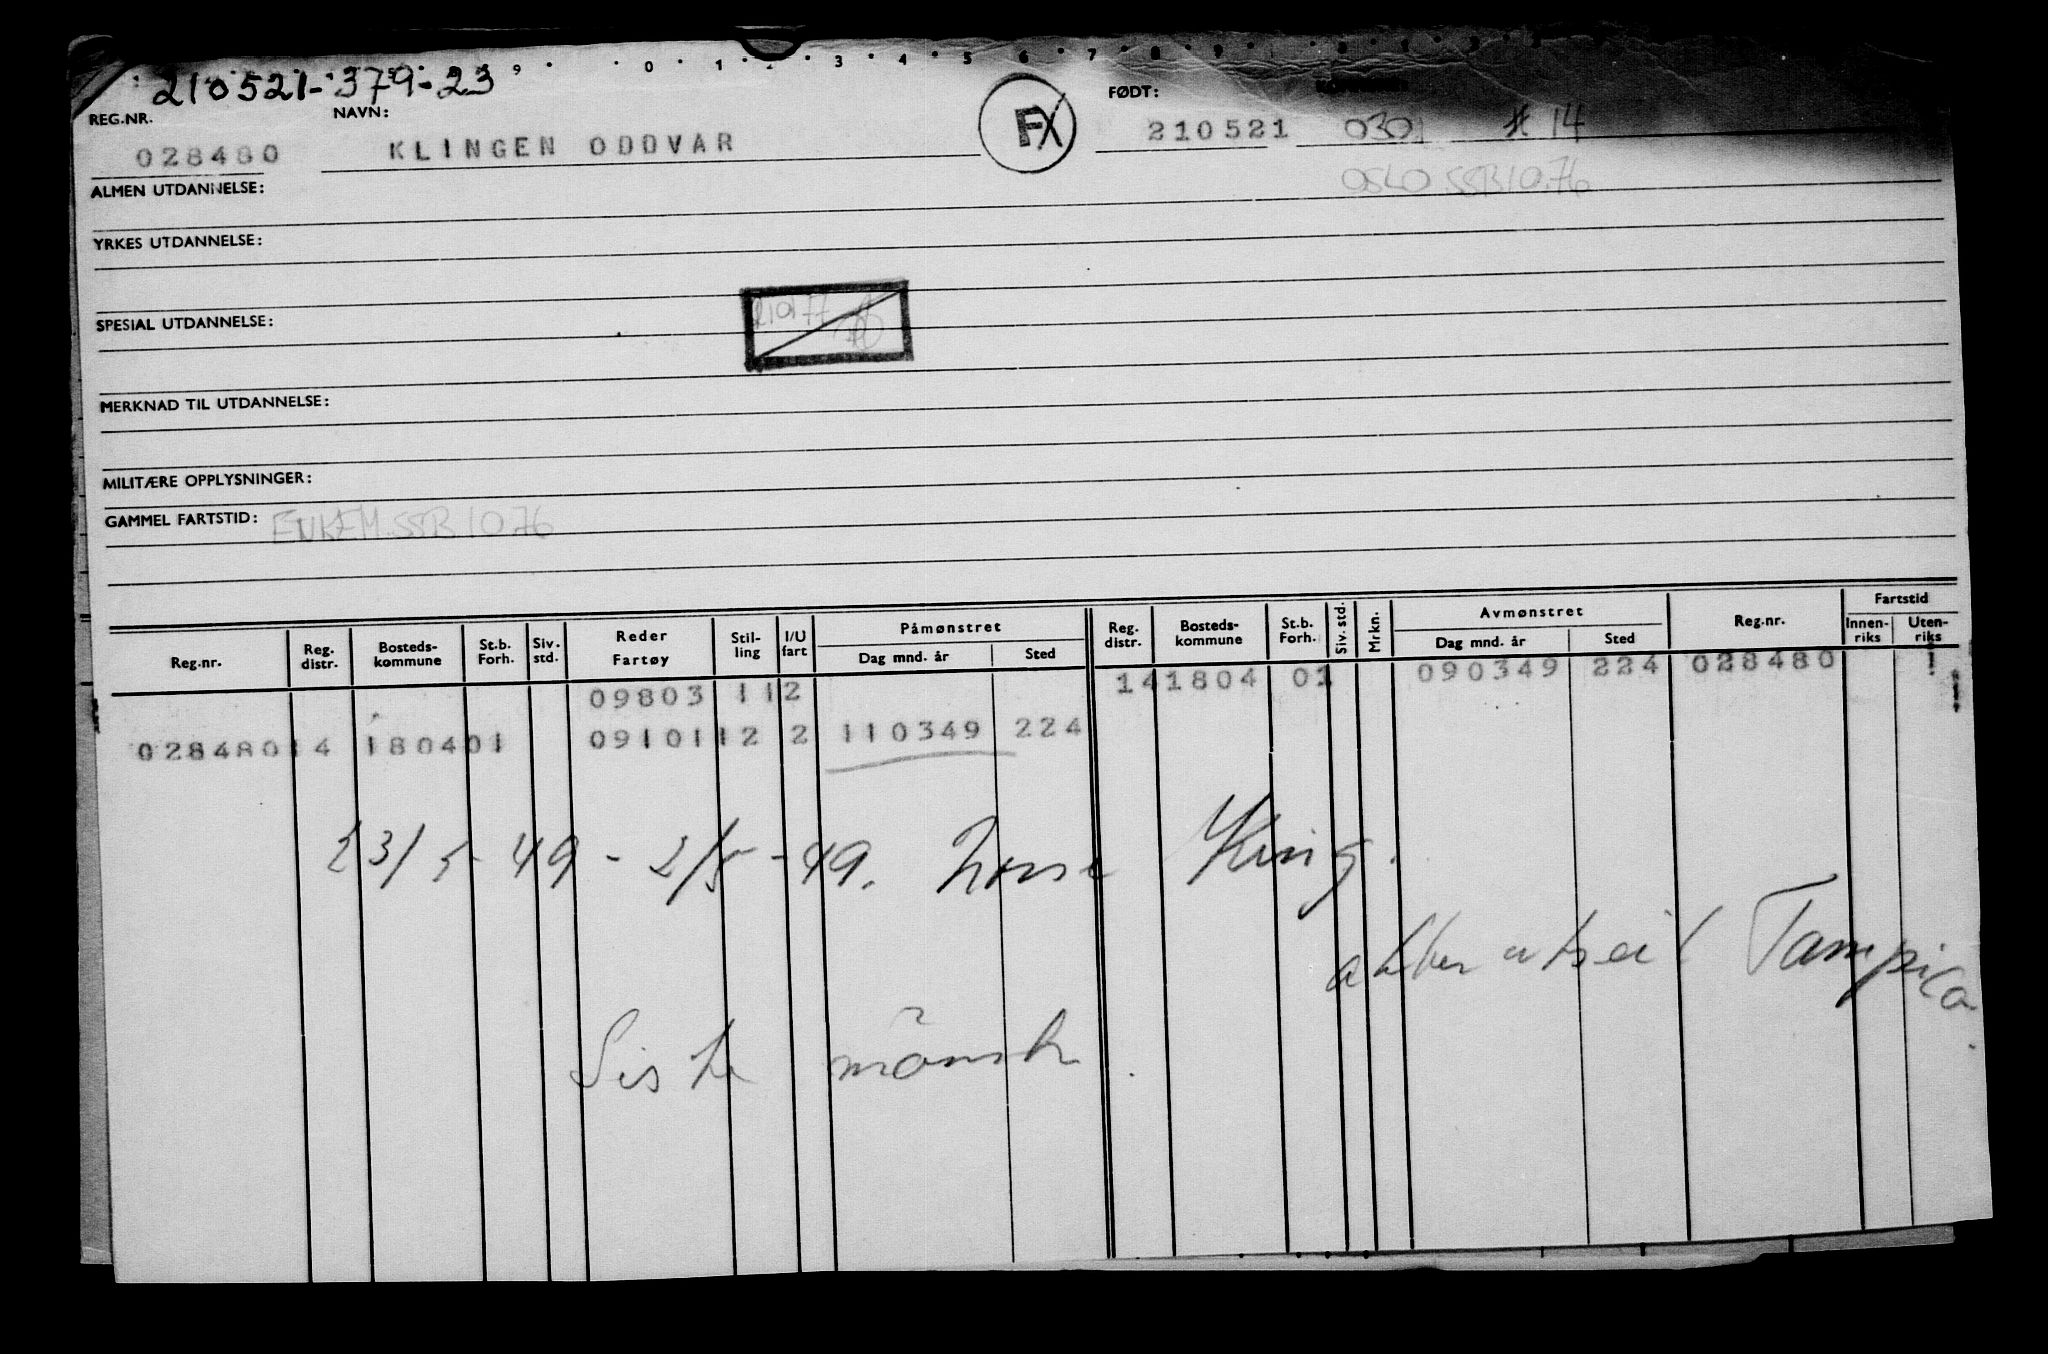 210521-379-23
REG.NR. NAVN: FØDT:
028480 KLINGEN ODDVAR FX 210521 0301 14
OSLO SSB 10.76
ALMEN UTDANNELSE:
YRKES UTDANNELSE:
SPESIAL UTDANNELSE:
MERKNAD TIL UTDANNELSE:
MILITÆRE OPPLYSNINGER:
GAMMEL FARTSTID: ENKEM. SSB 10.76
Reg.nr. Reg. distr. Bosteds-kommune St.b. Forh. Siv. std. Reder Fartøy Stil-ling I/U fart Påmønstret Dag mnd. år Sted Reg. distr. Bosteds-kommune St.b. Forh. Siv. std. Mrkn. Avmønstret Dag mnd. år Sted Reg.nr. Fartstid Innen-riks Uten-riks
09803 11 2 14 1804 01 090349 224 028480
028480 14 1804 01 09101 12 2 110349 224
23/5-49 - 2/5-49. Norse King.
akter utseilt Tampico.
Siste mønstr.